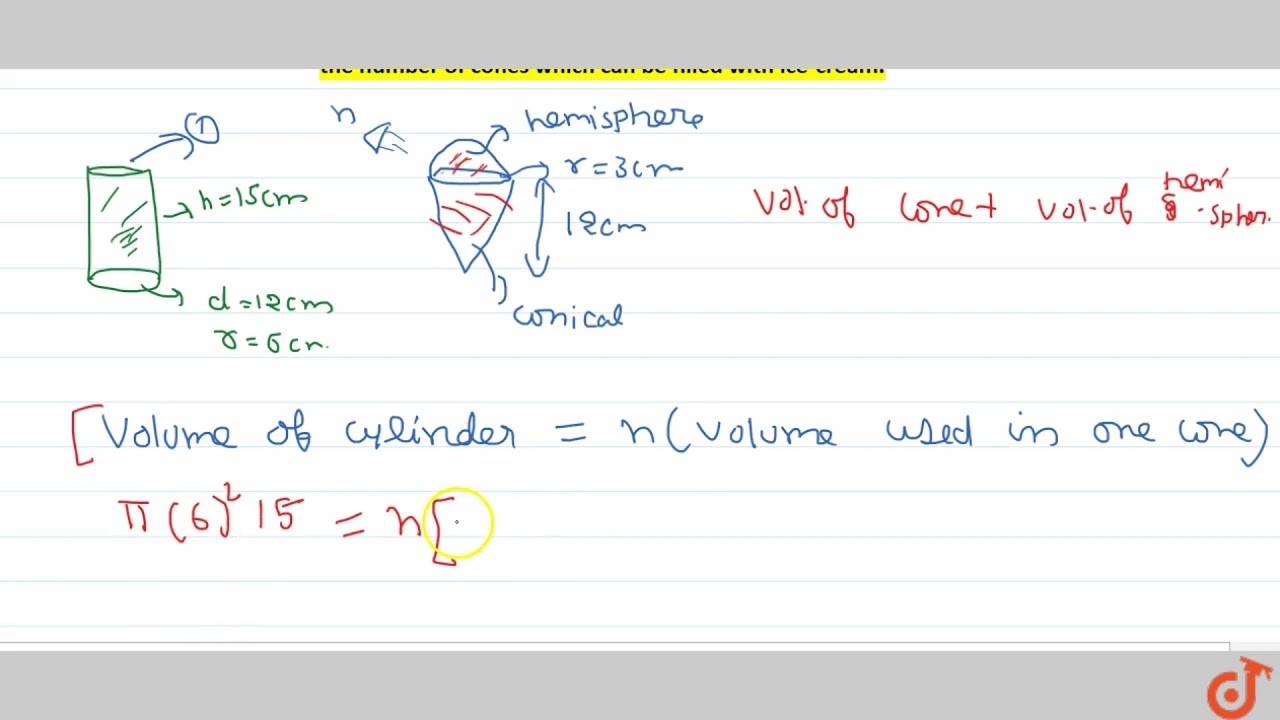 the number of cones which can be filled with ice-cream.
1
n
hemisphere
h=15cm
r=3cm
12cm
vol. of cone + vol. of hemi
-spher.
d=12cm
conical
[Volume of cylinder = n(volume used in one cone)
π(6)² 15 = n[